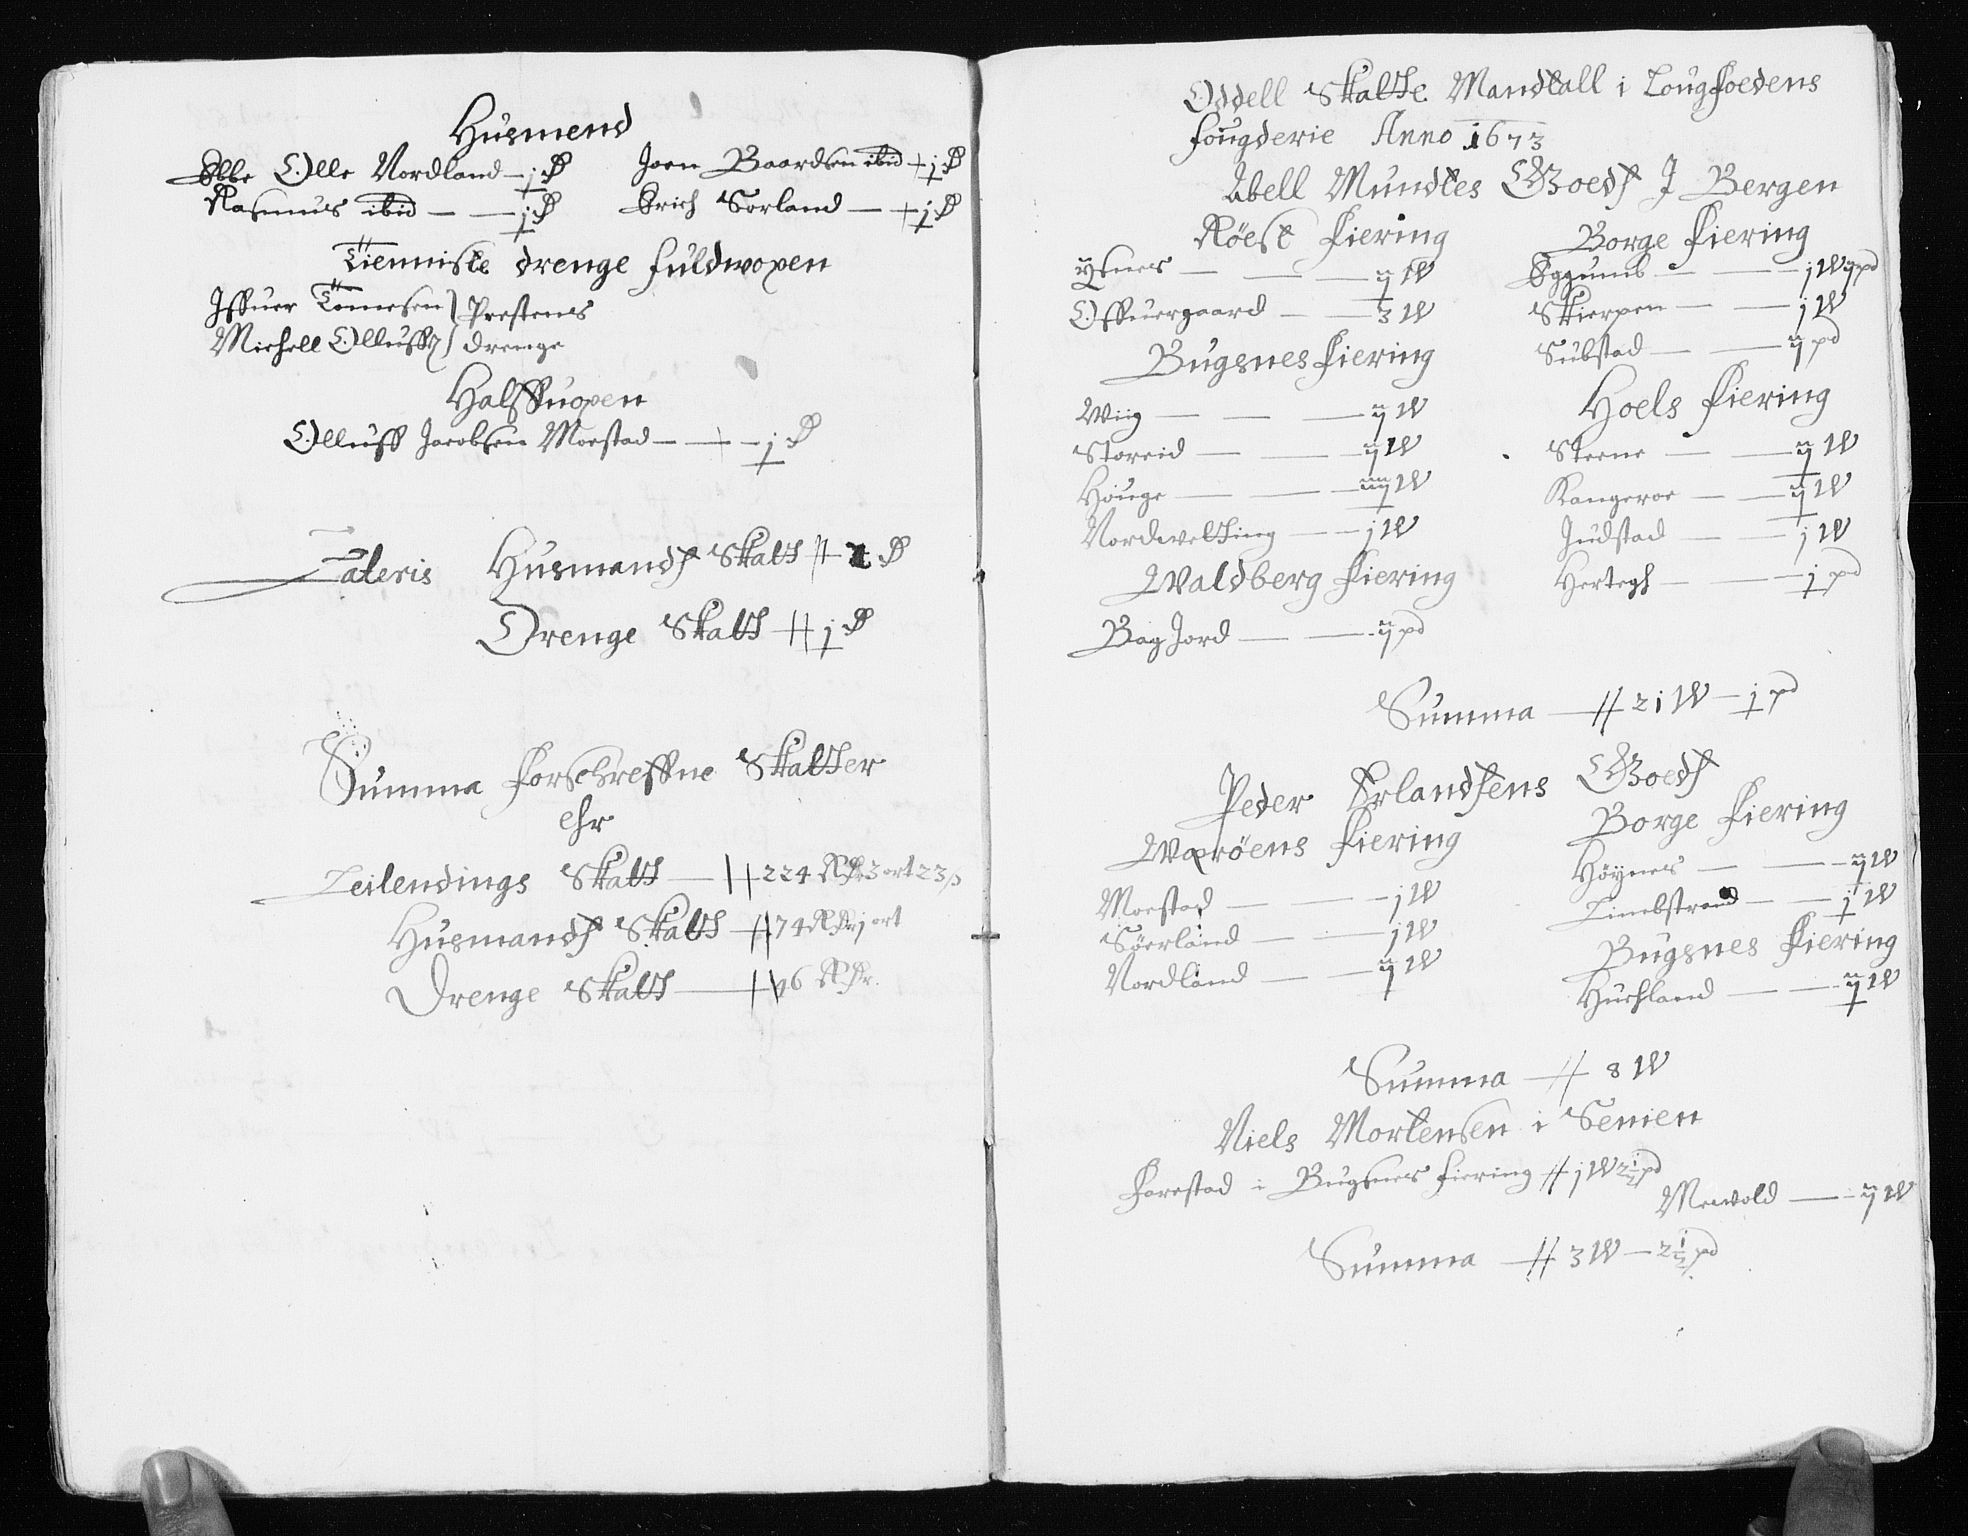 Husmend
Ebbe Olle Nordland — j
Rasmus ibid — — j
Joen Baardsen ibid j
Erich Sorland — j
Tienniste drenge fuldwoxen
Iffuer Tomesen } Prestens
Michell Olluffs } drenge
Halffuoxen
Olluff Jacobsen Moestad — — j
Lateris Husmands Skatt
Drenge Skatt j
Summa forschreffne Skatter
ehr
Leilendings Skatt — 224 Rdr 3 ort 23 s
Husmands Skatt 74 Rdr j ort
Drenge Skatt — 6 Rdr.
Oddell Skatte Mandtall i Lougfoedens
fougderie Anno 1673
Abell Mundtes Goeds I Bergen
Røest Fiering
Ysnes — — ij W
Offuergaard — — 3 W
Bugsnes Fiering
Wiig — — — ij W
Storeid — — ij W
Houge — — — iiij W
Nordwelthing — — j W
Waldberg Fiering
Bag Jord — — ij pd
Borge Fiering
Eggumb — — j W ij pd
Skierpen — — j W
Substad — — ij pd
Hoels Fiering
Steene — — ij W
Kangeroe — — ij W
Judstad — — j W
Hertegh — — j pd
Summa — 21 W — j pd
Peder Erlandsens Goeds
Wærøens Fiering
Moestad — — j W
Søerland — — j W
Nordland — — ij W
Borge Fiering
Høynes — — ij W
Limbstrand — — j W
Bugsnes Fiering
Huchland — — ij W
Summa — 8 W
Niels Mortensen i Senien
Farestad i Bugsnes fiering j W 2½ pd
Mewold — ij W
Summa — 3 W — 2½ pd